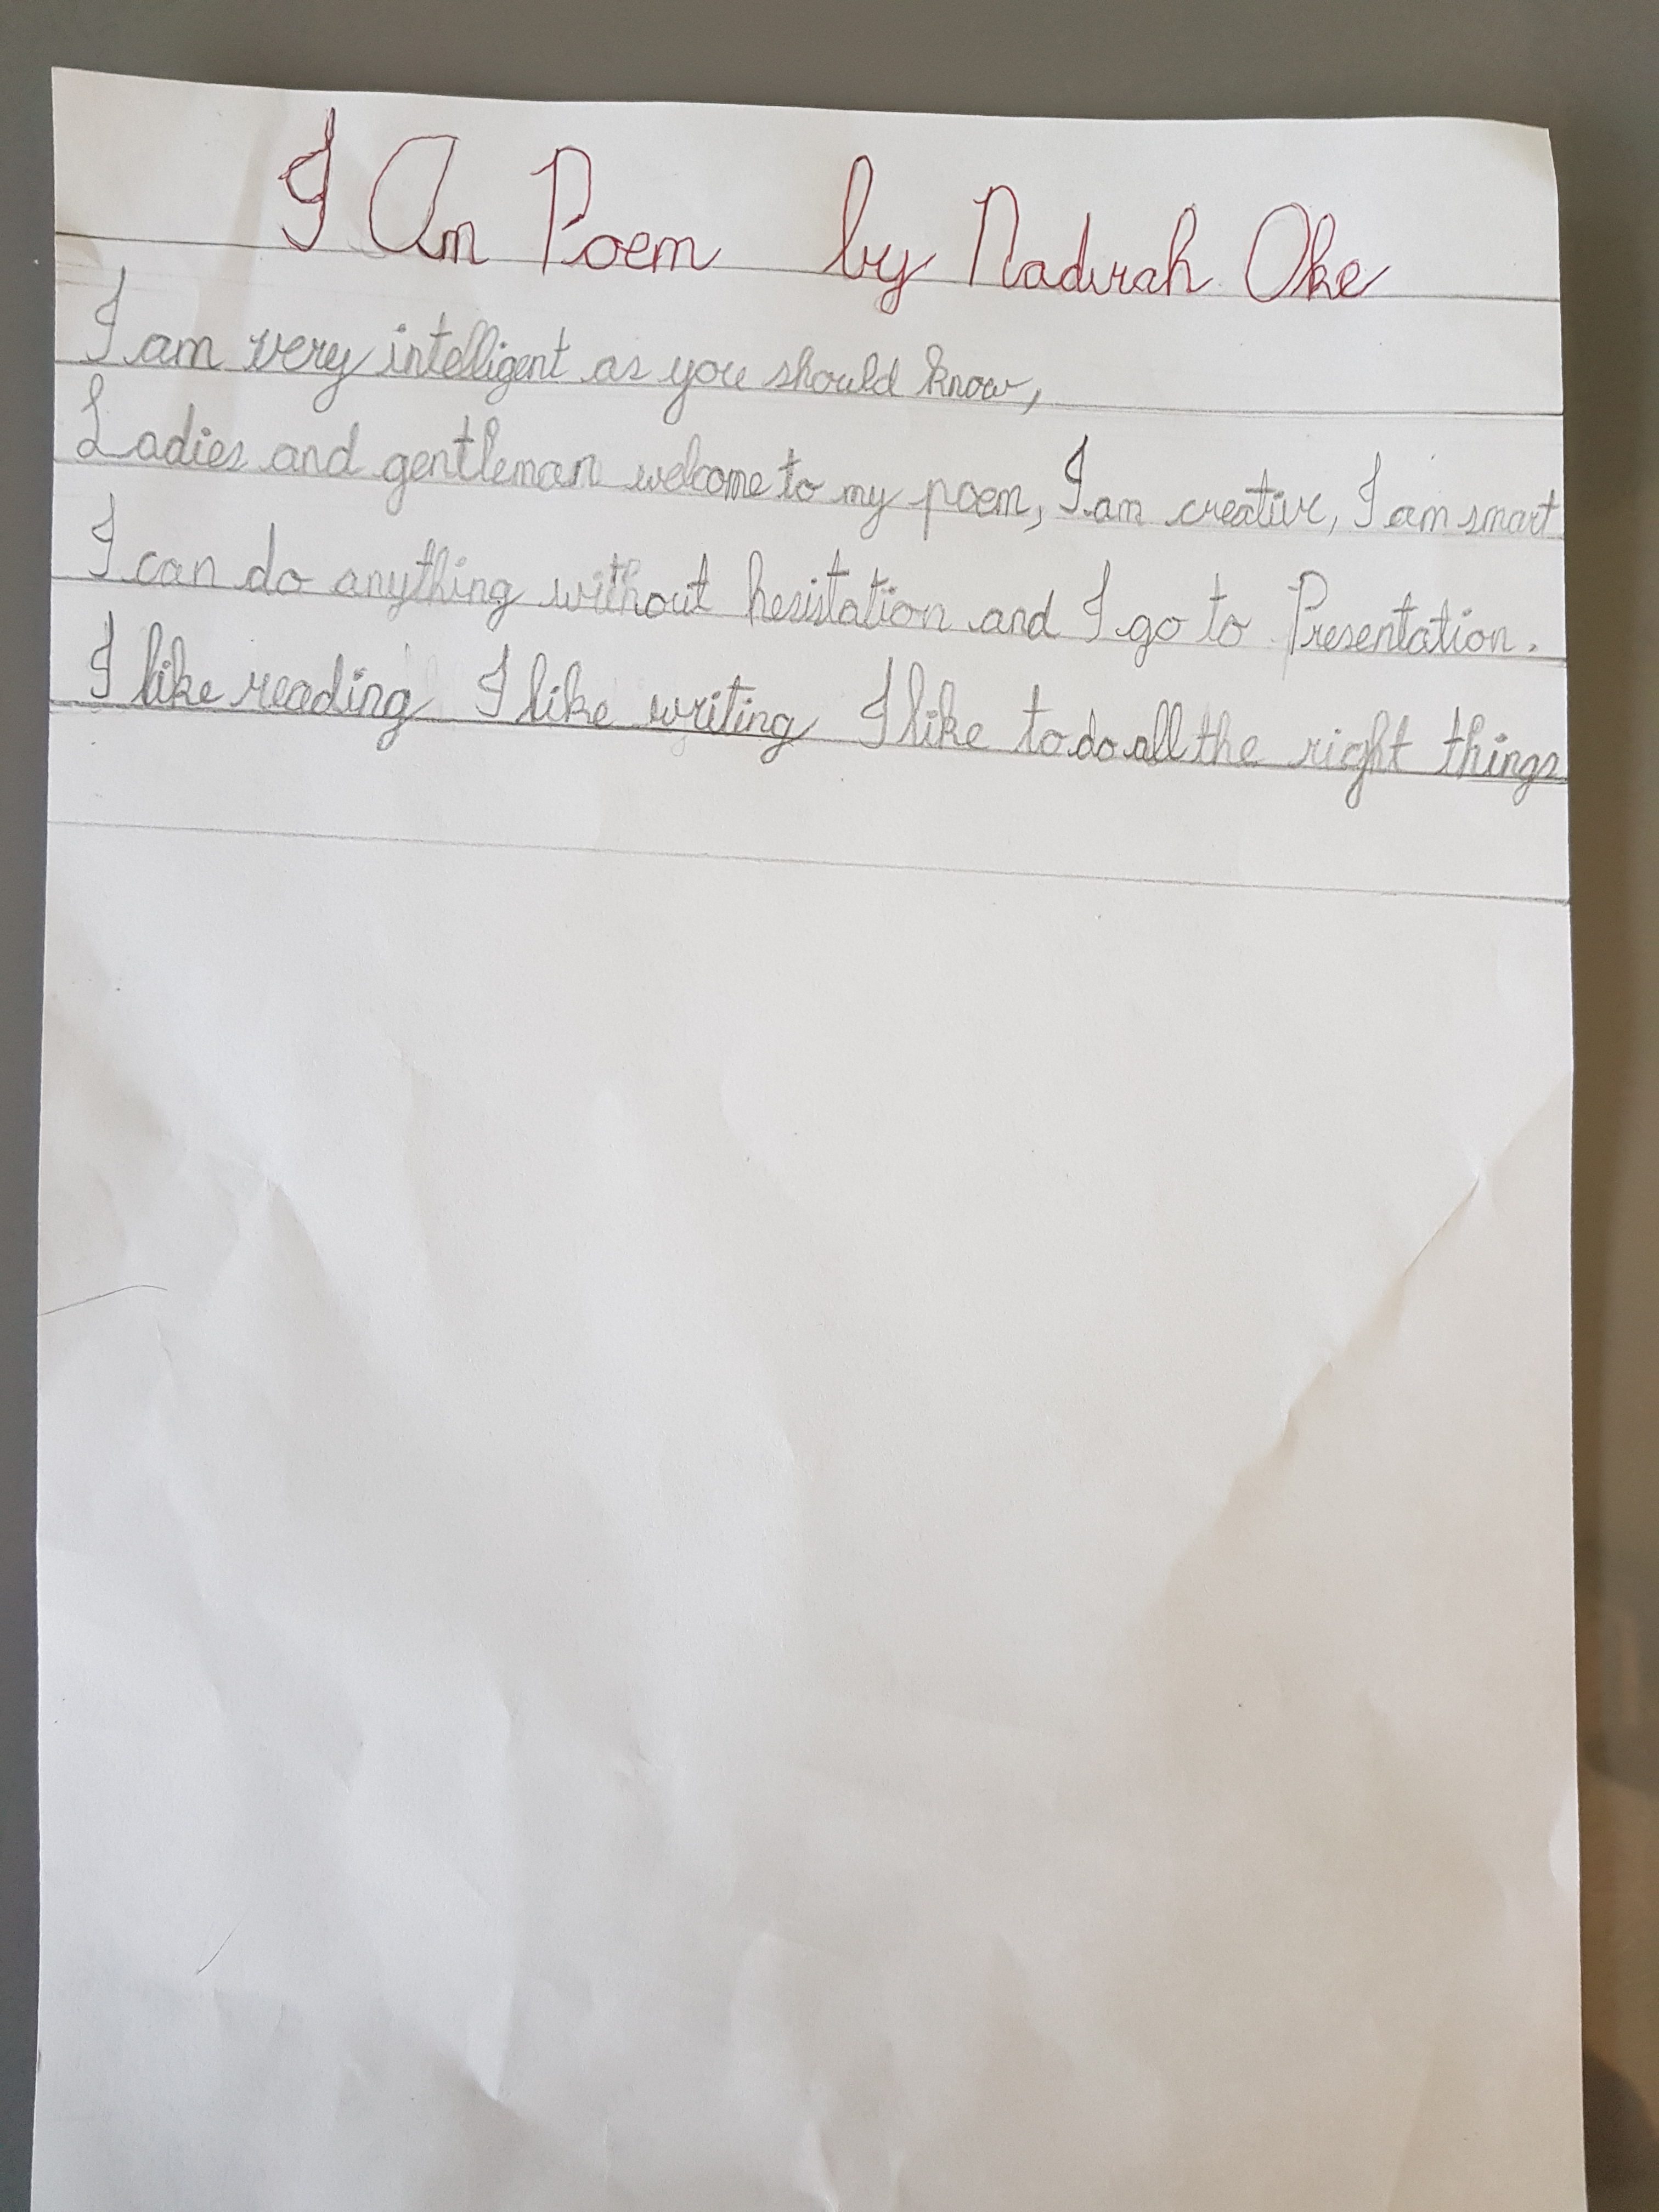 I Am Poem by Nadirah Oke
I am very intelligent as you should know,
Ladies and gentleman welcome to my poem, I am creative, I am smart
I can do anything without hesistation and I go to Presentation.
I like reading I like writing I like to do all the right things